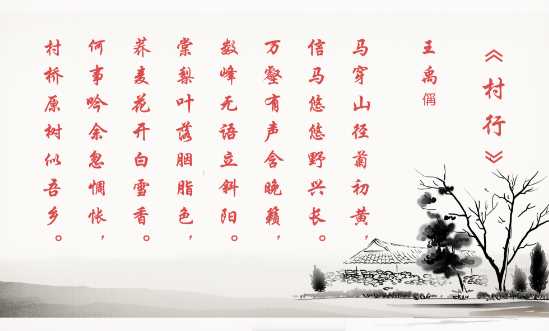 《村行》
王禹偁
马穿山径菊初黄，
信马悠悠野兴长。
万壑有声含晚籁，
数峰无语立斜阳。
棠梨叶落胭脂色，
荞麦花开白雪香。
何事吟余忽惆怅，
村桥原树似吾乡。